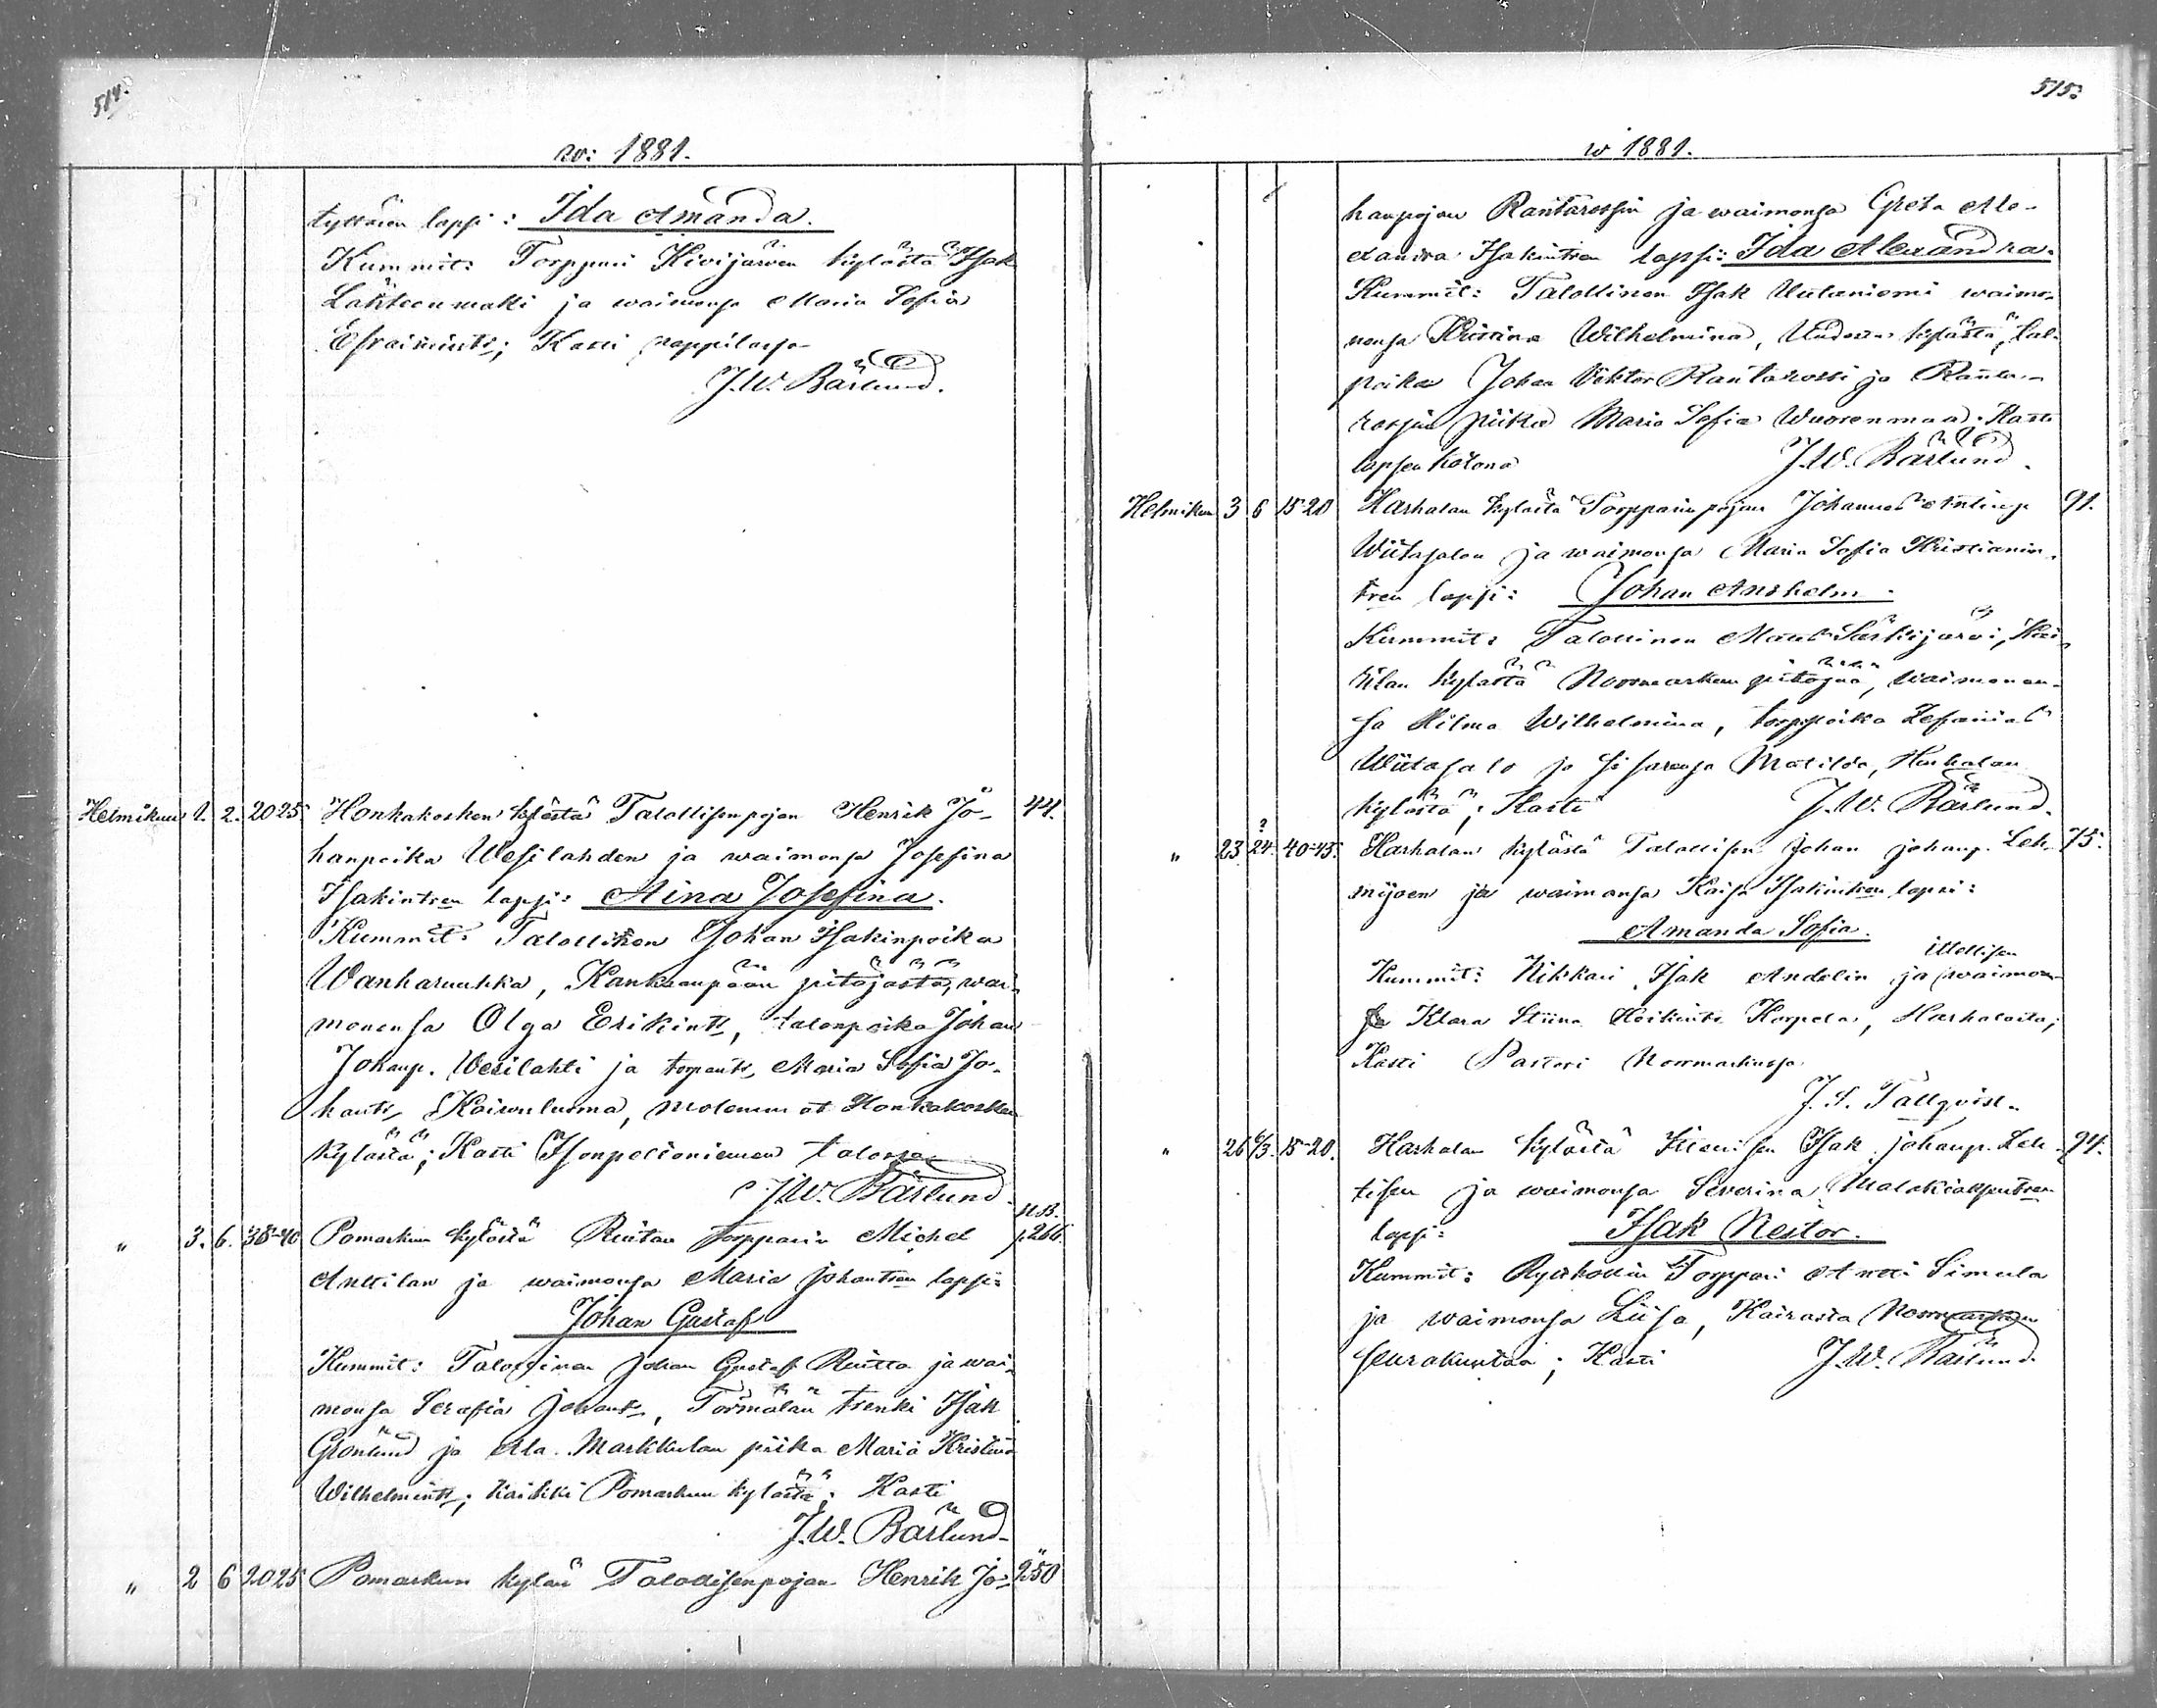 514.
w: 1881.
tyttären lapsi: Ida Amanda.
Kummit: Torppari Kivijärven kylästä Isak
Lähteenmäki ja waimonsa Maria Sofia
Efraimint:; Kasti pappilassa
J. W. Bärlund.
Helmikuu 1. 2. 20 25 Honkakosken kylästä Talollisenpojan Henrik Jo- 44.
hanpoika Wesilahden ja waimonsa Josefina
Isakintren lapsi: Aina Josefina.
Kummit: Talollinen Johan Isakinpoika
Wanharuuhka, Kankaanpään pitäjästä, wai-
monensa Olga Erikint:, talonpoika Johan
Johanp. Wesilahti ja torpant: Maria Sofia Jo-
hant: Koiwuluoma, molemmat Honkakosken
kylästä; Kasti Isonpelioniemen talossa
J. W. Bärlund.
" 3. 6. 38-40 Pomarkun kylästä Ruitan torpparin Michel p. 266.
Anttilan ja waimonsa Maria Johantren lapsi:
Johan Gustaf
Kummit: Talollinen Johan Gustaf Ruitta ja wai-
monsa Serafia Johant:, Törmälän trenki Isak
Grönlund ja Ala Markkulan piika Maria Kristiina
Wilhelmint:; kaikki Pomarkun kylästä; Kasti
J. W. Bärlund.
" 2 6 20 25 Pomarkun kylän Talollisenpojan Henrik Jo- 250
515.
w 1881.
hanpojan Rantarossin ja waimonsa Greta Ale-
xandra Isakintren lapsi: Ida Alexandra.
Kummit: Talollinen Isak Uutaniemi waimo-
nensa Wilhelmina, kylästä, tal.
poika Johan Viktor Rantarossi ja Ranta-
rossin piika Maria Sofia Wuorenmaa; Kasti
lapsen kotona J. W. Bärlund.
Helmikuu 3 6 15-20 Harhalan kylästä Torpparinpojan Johannes Antinp. 91.
Wiitasalon ja waimonsa Maria Sofia Kristianin-
tren lapsi: Johan Anshelm.
Kummit: Talollinen Särkijärvi,
kylästä Normarkun pitäjää, waimonen-
sa Hilma Wilhelmina, torp.poika Zefanias
Wiitasalo ja sisarensa Matilda, Harhalan
kylästä; Kasti J. W. Bärlund.
" 23 24. 40-45. Harhalan kylästä Talollisen Johan Johanp. Leh- 75.
mijoen ja waimonsa Kaisa Isakintren lapsi:
Amanda Sofia.
Kummit: Nikkari Isak Andelin ja itsellisen waimon-
sa Klara Stiina Heikint: Korpela, Harhalasta;
Kasti Pastori Normarkussa
J. S. Tallqvist.
" 26 6/3. 15-20. Harhalan kylästä Isak Johanp. Leh- 94.
tisen ja waimonsa Severina Malakiaksentren
lapsi: Isak Nestor.
Kummit: Torppari Antti Simula
ja waimonsa Liisa, Kairasta Normarkun
seurakuntaa; Kasti J. W. Bärlund.